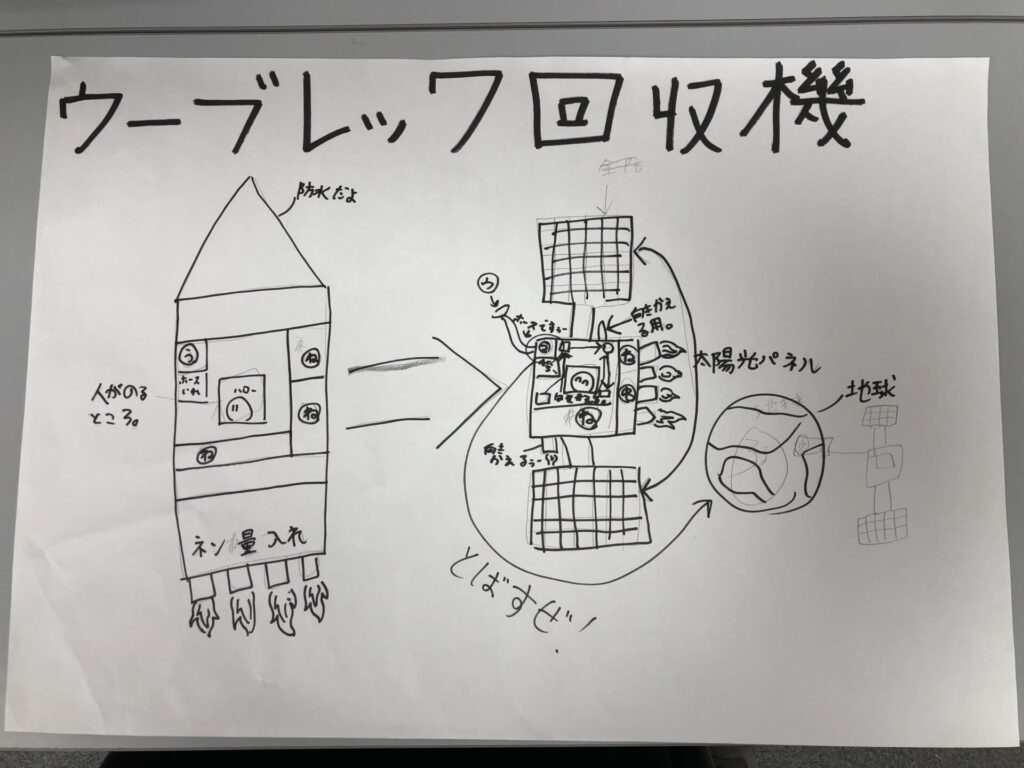 ウーブレック回収機
防水だよ
う
ホース
いれ
ハロー
ね
ね
人がのる
ところ。
ね
ネン量入れ
ウ
ホースですぅー
向きかえ
る用。
う
ね
ね
ね
太陽光パネル
向き
かえるぅー!?
地球
とばすぜ!